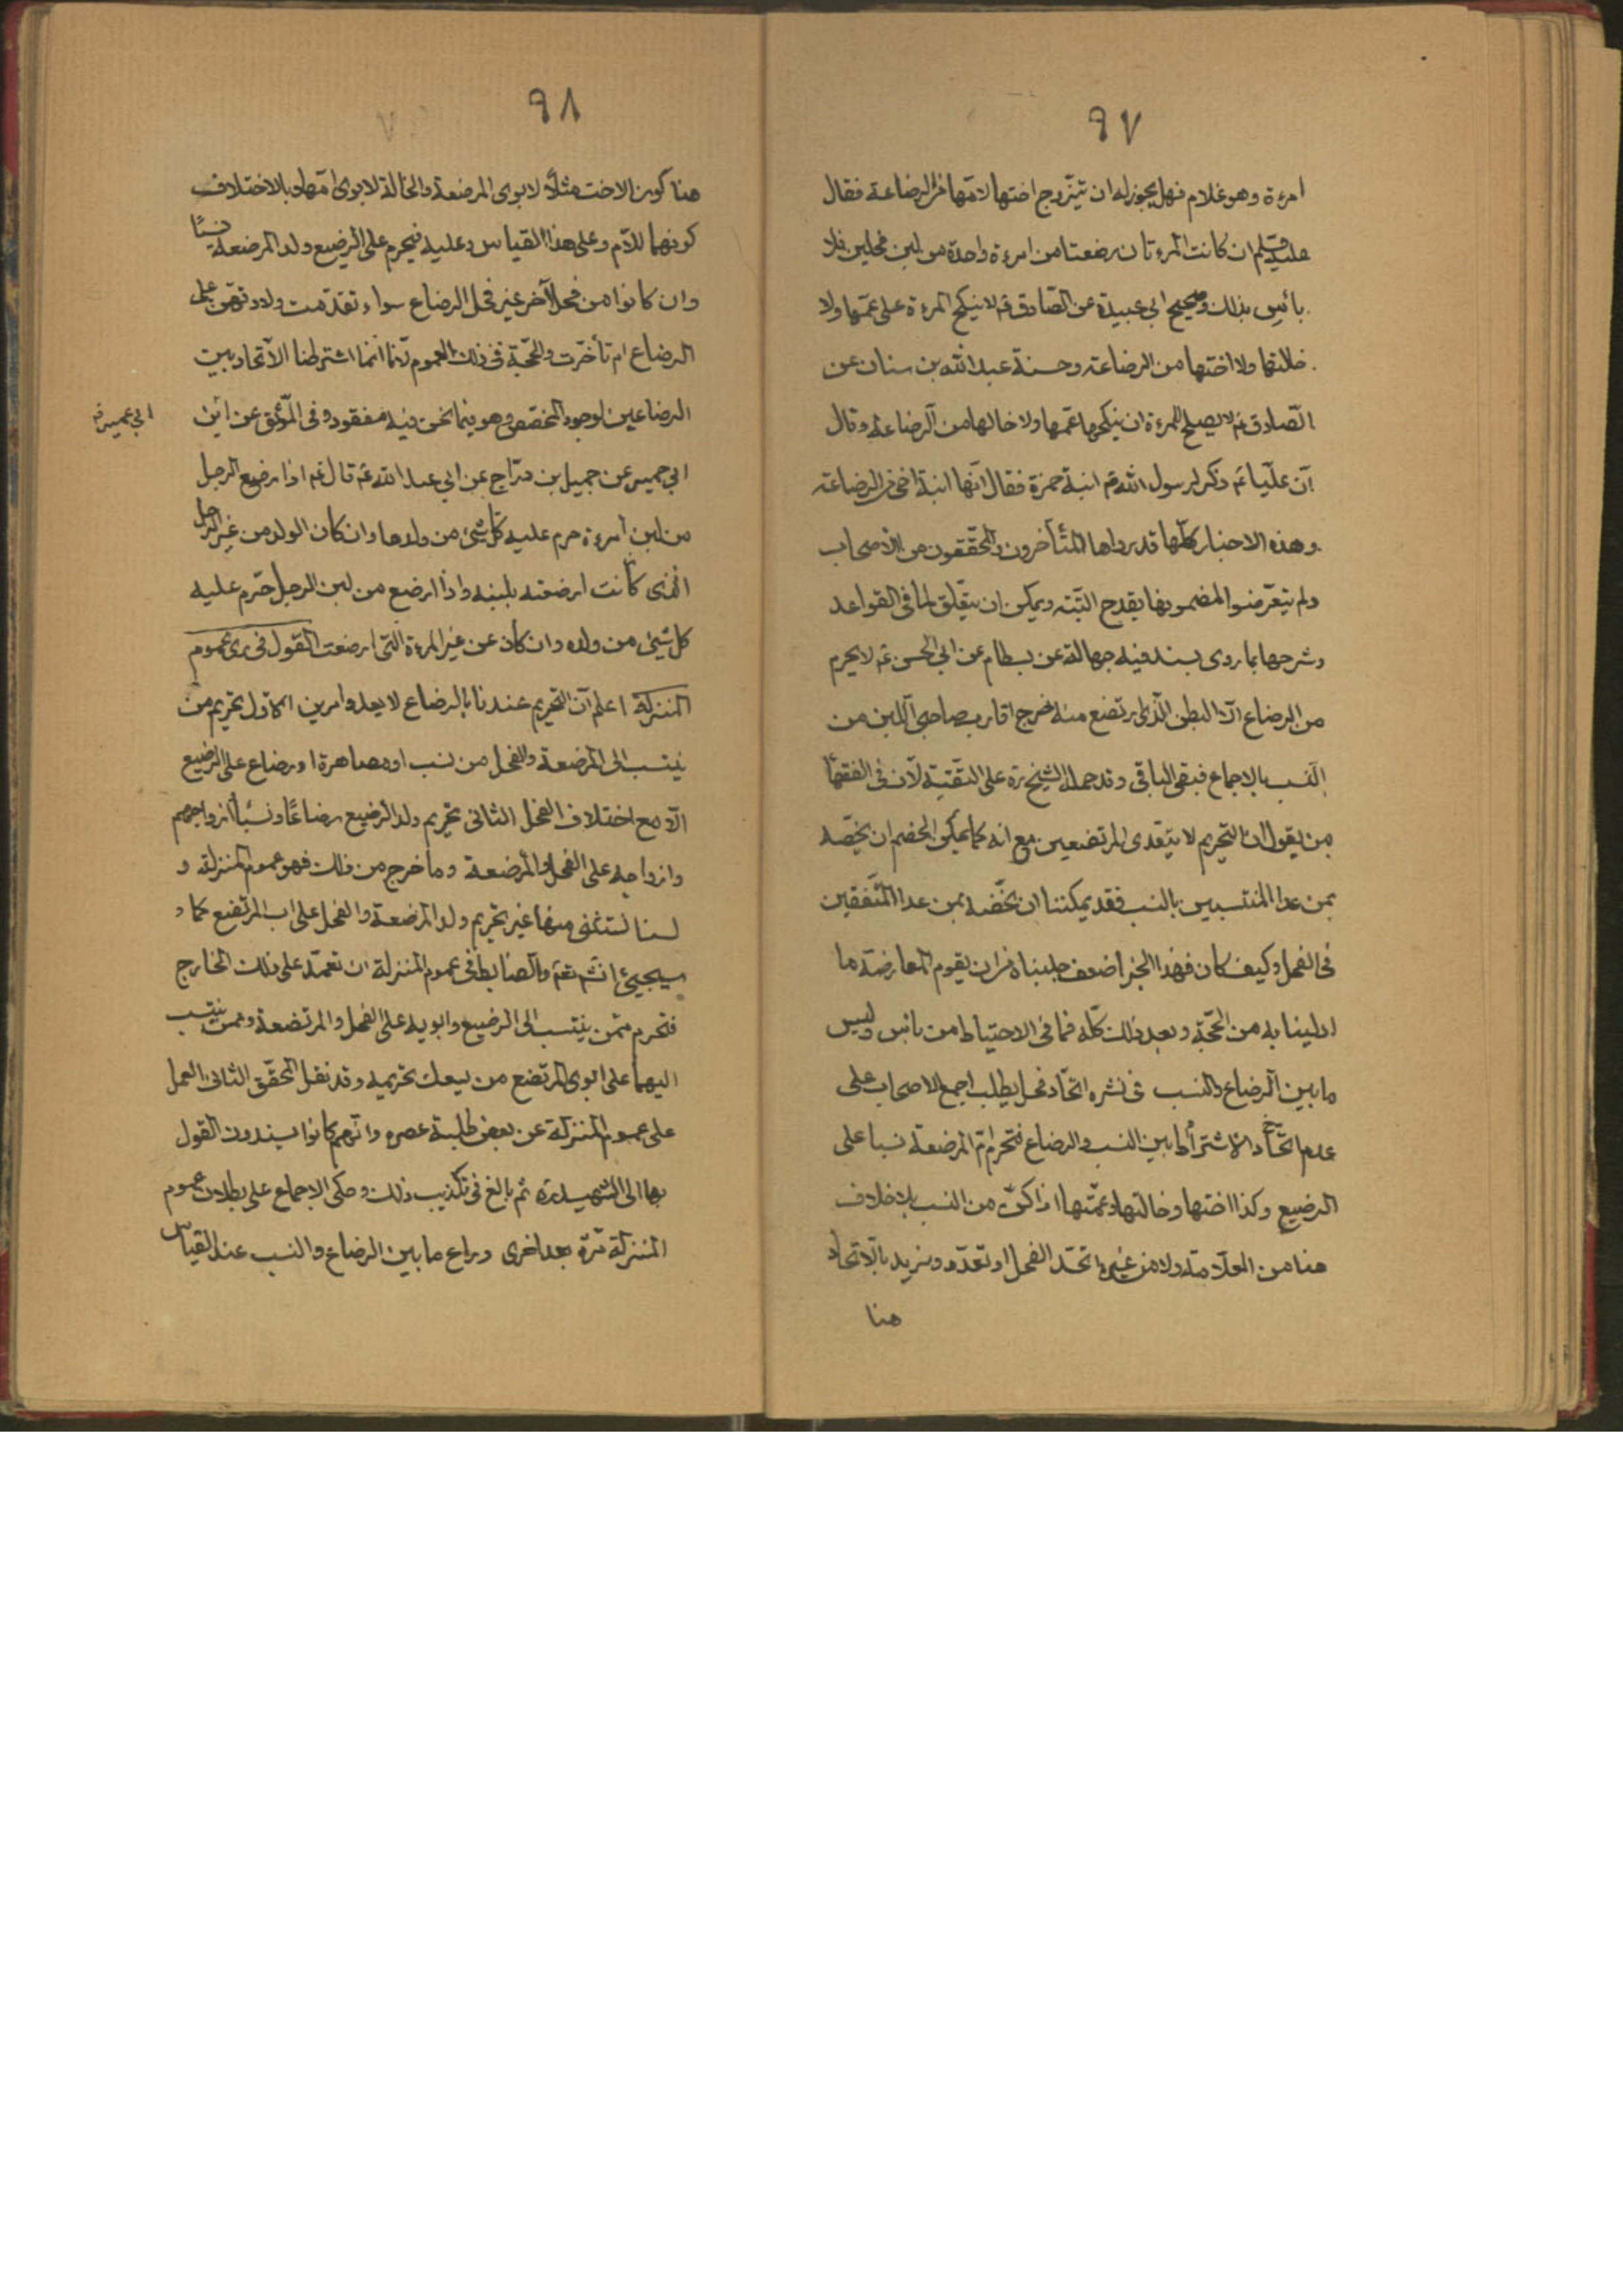 ٩٧
امرءة وهو غلام فهل يجوز له ان يتزوج اختها لامها من الرضاعة فقال
ان كانت المرءتان رضعتا من امرءة واحدة من لبن فحلين فلا
بأس بذلك وصحيح ابي عبيدة عن الصادق ع لا ينكح المرءة على عمتها ولا
خالتها ولا اختها من الرضاعة وحسنة عبد الله بن سنان عن
الصادق ع لا يصلح للمرءة ان ينكحها عمها ولا خالها من الرضاعة وقال
ان عليا ع ذكر لرسول الله ص ابنة حمزة فقال انها ابنة اخي من الرضاعة
وهذه الاخبار كلها قد رواها المتأخرون والمحققون من الاصحاب
ولم يتعرضوا لمضمونها بقدح البتة ويمكن ان يتعلق لما في القواعد
وشرحها بما روى بسند فيه جهالة عن بسطام عن ابي الحسن ع لا يحرم
من الرضاع الا البطن الذي ارتضع منه خرج اقارب صاحب اللبن من
النسب بالاجماع فبقى الباقي وقد حمله الشيخ ره على التقية لان في الفقهآ
من يقول ان التحريم لا يتعدى المرتضعين مع انه كما يمكن الخصم ان يخصه
بمن عدا المنتسبين بالنسب فقد يمكننا ان نخصه بمن عدا المتفقين
في الفحل وكيف كان فهذا الخبر اضعف جلبناه من ان يقوم لمعارضة ما
ادلينا به من الحجة وبعد ذلك كله فما في الاحتياط من بائس وليس
ما بين الرضاع والنسب في نشره اتحاد فحل يطلب اجمع الاصحاب على
عدم اشتراط ما بين النسب والرضاع فتحرم ام المرضعة نسبا على
الرضيع وكذا اختها وخالتها وعمتها اذا كن من النسب بلا خلاف
هنا من العلامة ولا من غيره اتحد الفحل او تعدد ونريد بالاتحاد
هنا
٩٨
هنا كون الاخت مثلا لابوى المرضعة والخالة لابوى امها وبالاختلاف
كونهما للام وعلى هذا القياس وعليه فيحرم على الرضيع ولد المرضعة نسبًا
وان كانوا من فحل آخر غير فحل الرضاع سواء تقدمت ولادتهم على
الرضاع ام تأخرت والحجة في ذلك العموم انما اشترطنا الاتحاد بين
الرضاعين لوجود المخصص وهو فيما نحن فيه مفقود وفي الموثق عن ابن
ابي عمير عن جميل بن دراج عن ابي عبد الله ع قال ع اذا رضع الرجل
من لبن امرءة حرم عليه كل شئ من ولدها وان كان الولد من غير الرجل
الذى كانت ارضعته بلبنه واذا ارضع من لبن الرجل حرم عليه
كل شيئ من ولده وان كان عن غير المرءة التي ارضعت القول في عموم
المنزلة اعلم ان التحريم عندنا بالرضاع لا يعدو امرين الاول تحريم من
ينتسب الى المرضعة والفحل من نسب او مصاهرة او رضاع على الرضيع
الا مع اختلاف الفحل الثاني تحريم ولد الرضيع رضاعًا ونسبًا وازواجهم
وازواجه على الفحل والمرضعة وما خرج من ذلك فهو عموم المنزلة و
لسنا نستثنى منها غير تحريم ولد المرضعة والفحل على اب المرتضع كما
سيجيئ انشم تعم والضابط في عموم المنزلة ان تعمد على ذلك الخارج
فتحرم ممن ينتسب الى الرضيع وابويه على الفحل والمرتضعة وممن ينتسب
اليهما على ابوى المرتضع من يسعك تحريمه وقد نقل المحقق الثاني العمل
على عموم المنزلة عن بعض طلبة عصره وانهم كانوا يسندون القول
بها الى الشهيد ره ثم بالغ في تكذيب ذلك وحكى الاجماع على بطلان عموم
المنزلة مرة بعد اخرى وراع ما بين الرضاع والنسب عند القياس
ابي عمير